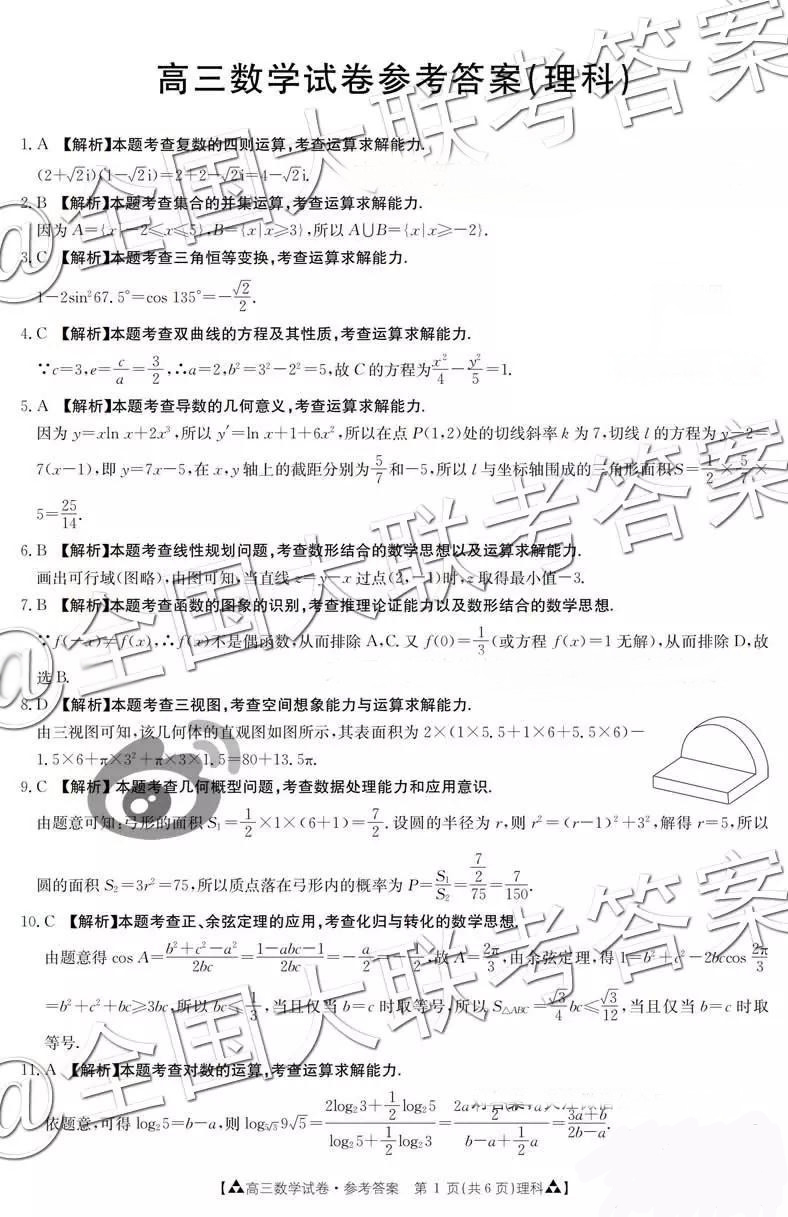 高三数学试卷参考答案(理科)
1. A 【解析】本题考查复数的四则运算,考查运算求解能力.
(2+√2i)(1-√2i)=2+2-√2i=4-√2i.
2. B 【解析】本题考查集合的并集运算,考查运算求解能力.
因为 A={x|-2≤x≤5},B={x|x≥3},所以 A∪B={x|x≥-2}.
3. C 【解析】本题考查三角恒等变换,考查运算求解能力.
1-2sin²67.5°=cos 135°=-√2/2.
4. C 【解析】本题考查双曲线的方程及其性质,考查运算求解能力.
∵c=3,e=c/a=3/2,∴a=2,b²=3²-2²=5,故 C 的方程为x²/4-y²/5=1.
5. A 【解析】本题考查导数的几何意义,考查运算求解能力.
因为 y=xln x+2x³,所以 y′=ln x+1+6x²,所以在点 P(1,2)处的切线斜率 k 为 7,切线 l 的方程为 y-2=
7(x-1),即 y=7x-5,在 x,y 轴上的截距分别为5/7和-5,所以 l 与坐标轴围成的三角形面积S=1/2×5/7×
5=25/14.
6. B 【解析】本题考查线性规划问题,考查数形结合的数学思想以及运算求解能力.
画出可行域(图略),由图可知,当直线 z=y-x 过点(2,-1)时,z 取得最小值-3.
7. B 【解析】本题考查函数的图象的识别,考查推理论证能力以及数形结合的数学思想.
∵f(-x)≠f(x),∴f(x)不是偶函数,从而排除 A,C. 又 f(0)=1/3(或方程 f(x)=1 无解),从而排除 D,故
选 B.
8. D 【解析】本题考查三视图,考查空间想象能力与运算求解能力.
由三视图可知,该几何体的直观图如图所示,其表面积为 2×(1×5.5+1×6+5.5×6)-
1.5×6+π×3²+π×3×1.5=80+13.5π.
9. C 【解析】本题考查几何概型问题,考查数据处理能力和应用意识.
由题意可知:弓形的面积 S₁=1/2×1×(6+1)=7/2. 设圆的半径为 r,则 r²=(r-1)²+3²,解得 r=5,所以
圆的面积 S₂=3r²=75,所以质点落在弓形内的概率为 P=S₁/S₂=(7/2)/75=7/150.
10. C 【解析】本题考查正、余弦定理的应用,考查化归与转化的数学思想.
由题意得 cos A=(b²+c²-a²)/2bc=(1-abc-1)/2bc=-a/2=-1/2,故 A=2π/3,由余弦定理,得 1=b²+c²-2bccos 2π/3
=b²+c²+bc≥3bc,所以 bc≤1/3,当且仅当 b=c 时取等号,所以 S△ABC=√3/4 bc≤√3/12,当且仅当 b=c 时取
等号.
11. A 【解析】本题考查对数的运算,考查运算求解能力.
依题意,可得 log₂5=b-a,则 log₅√3 9√5=(2log₂3+1/2 log₂5)/(log₂5+1/2 log₂3)=2a/(b-a+1/2 a)=(3a+b)/(2b-a).
【高三数学试卷·参考答案 第 1 页(共 6 页)理科】
@全国大联考答案
@全国大联考答案
@全国大联考答案